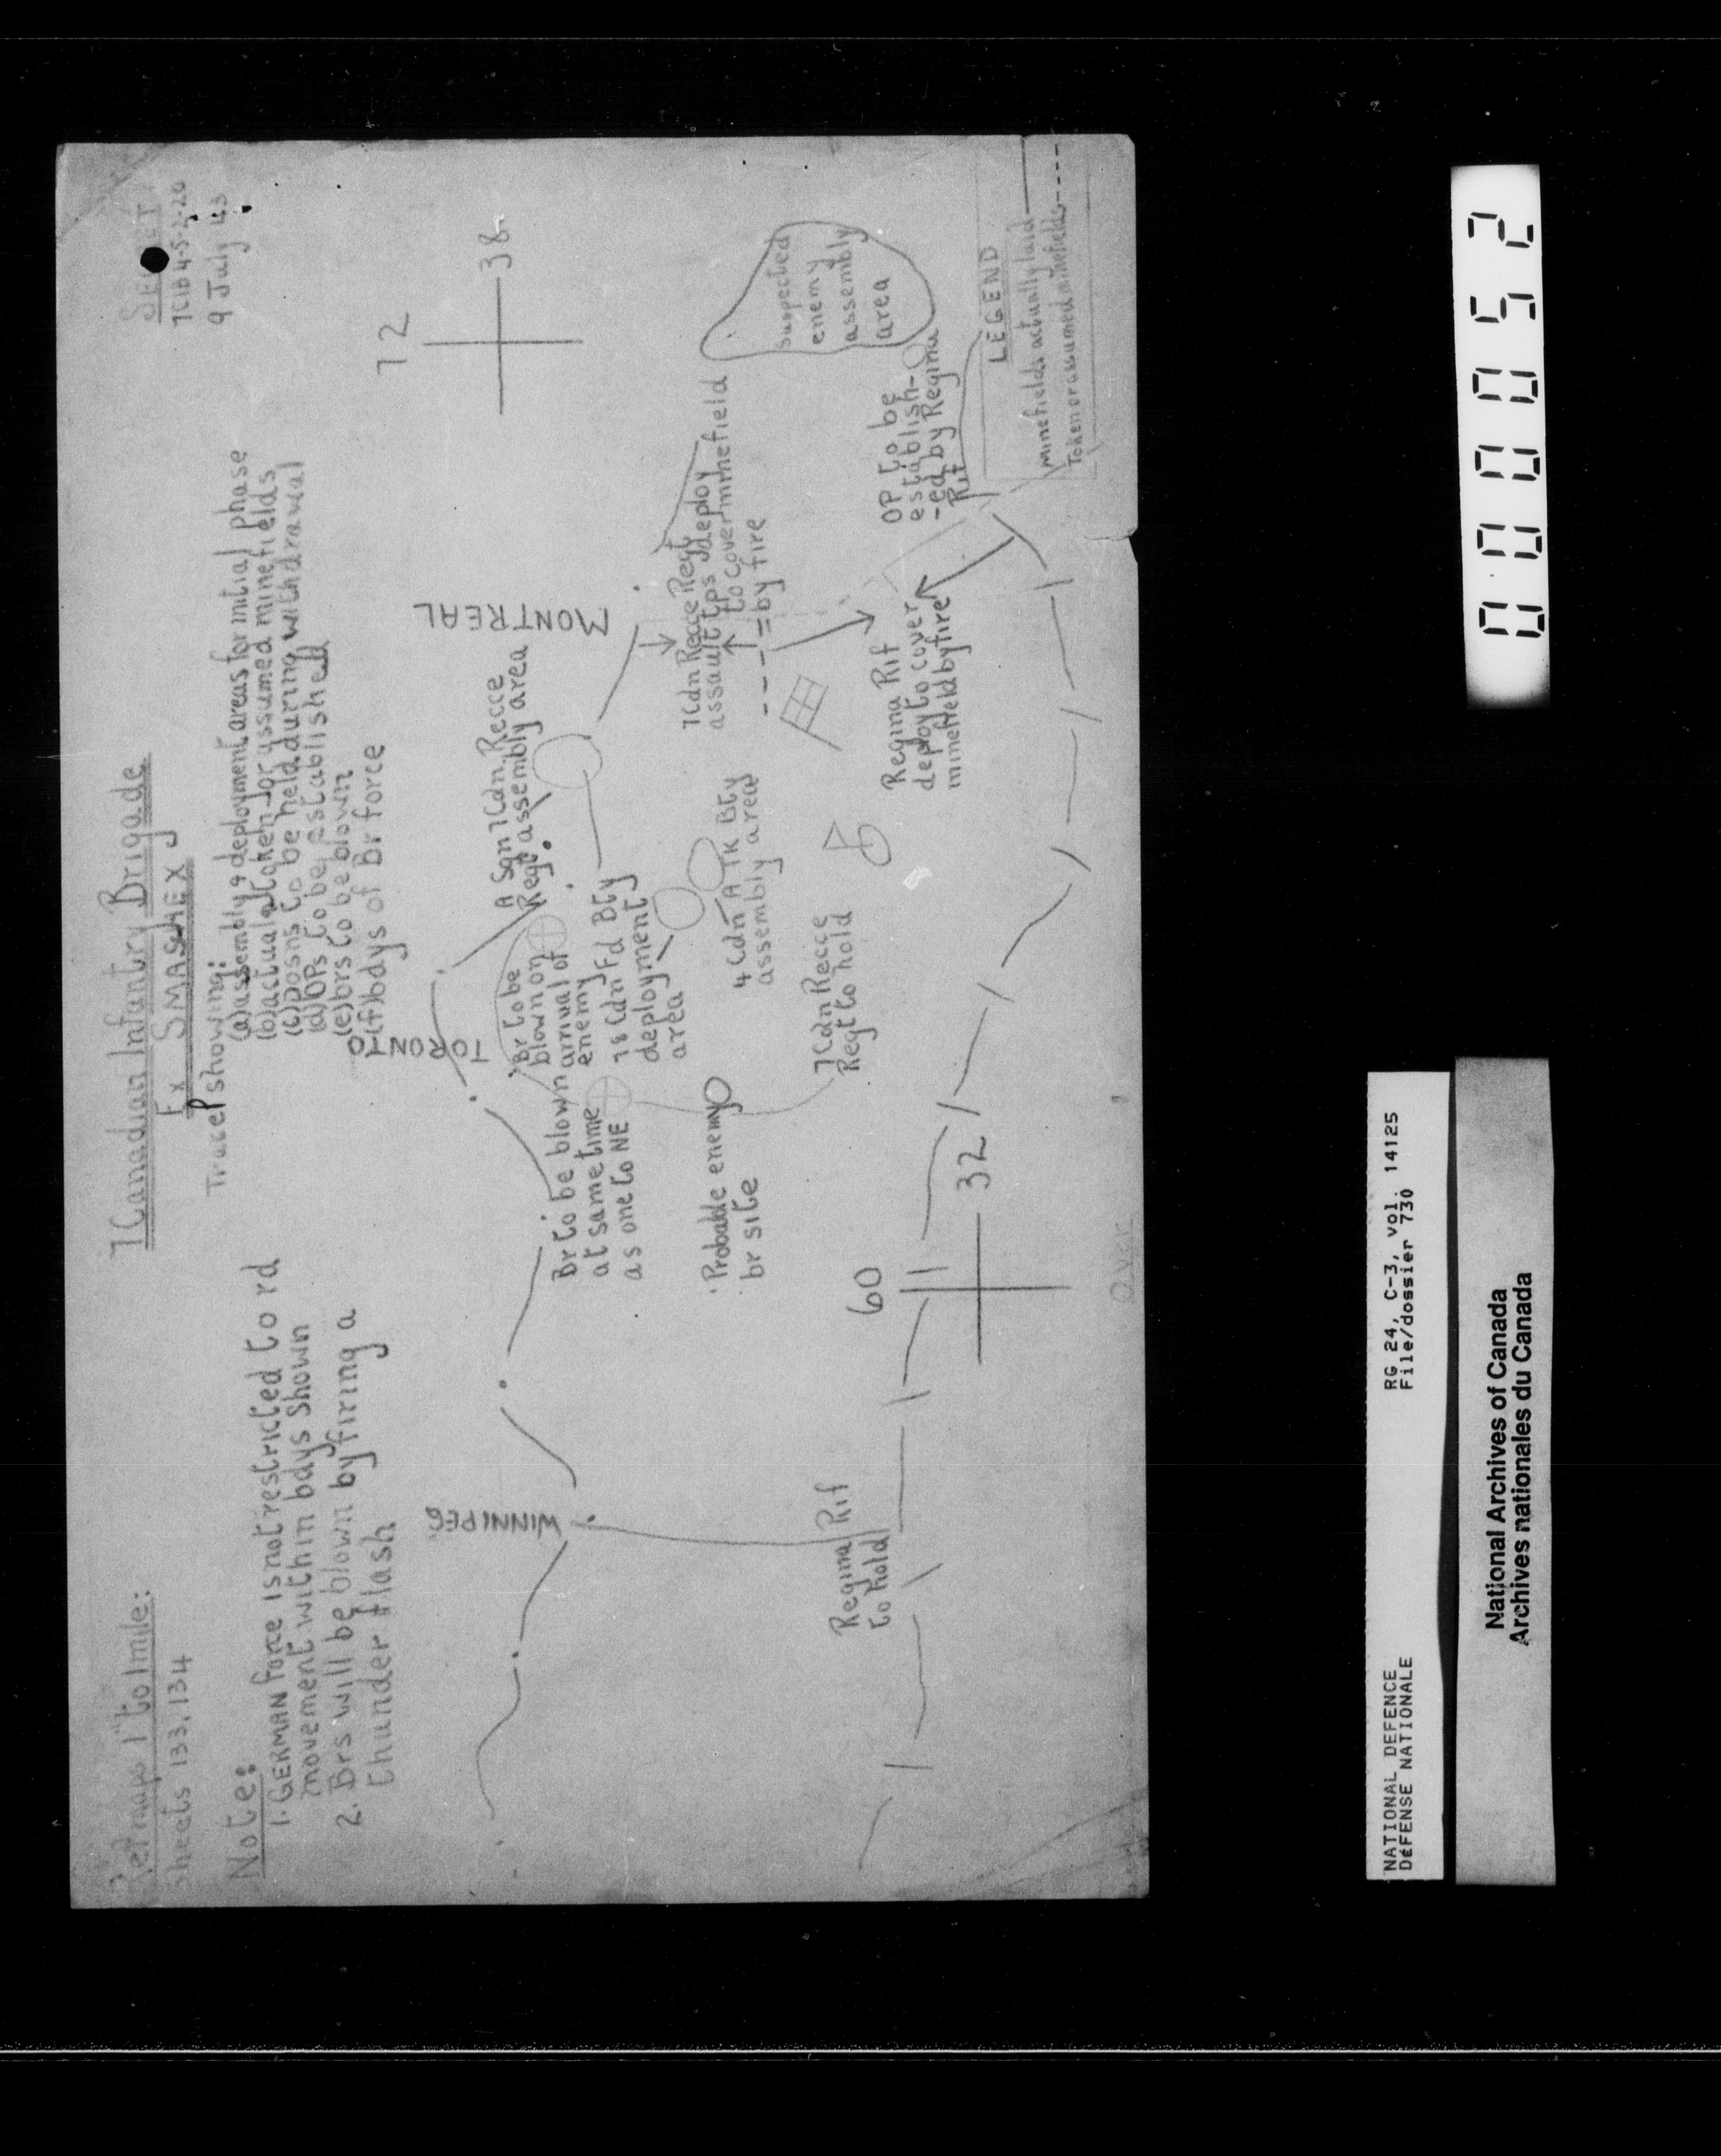 Ref maps 1" to 1 mile:
Sheets 133, 134
7 Canadian Infantry Brigade
Ex SMASHEX
SECRET
7CIB 4-5-2-20
9 July 43
Trace P showing:
(a) assembly & deployment areas for initial phase
(b) actual & token or assumed minefields
(c) posns to be held during withdrawal
(d) OPs to be established
(e) brs to be blown
(f) bdys of Br force
Note:
1. GERMAN force is not restricted to rd
movement within bdys shown
2. Brs will be blown by firing a
thunder flash
72
38
MONTREAL
TORONTO
WINNIPEG
A Sqn 7 Cdn Recce
Regt assembly area
Br to be
blown on
arrival of
enemy
Br to be blown
at same time
as one to NE
78 Cdn Fd Bty
deployment
area
7 Cdn Recce Regt
assault tps deploy
to cover minefield
by fire
Suspected
enemy
assembly
area
4 Cdn A TK Bty
assembly area
Probable enemy
br site
7 Cdn Recce
Regt to hold
Regina Rif
deploy to cover
minefield by fire
OP to be
establish-
-ed by Regina
Rif
Regina Rif
to hold
60
32
LEGEND
Minefields actually laid
Token or assumed minefields
Over
000052
NATIONAL DEFENCE
DÉFENSE NATIONALE
RG 24, C-3, vol. 14125
File/dossier 730
National Archives of Canada
Archives nationales du Canada